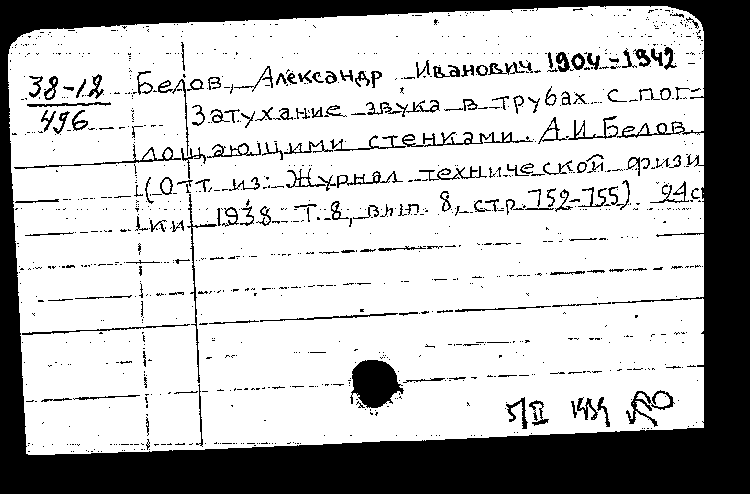 38-12
496
Белов, Александр Иванович 1904-1942
Затухание звука в трубах с пог-
лощающими стенками. А.И.Белов.
(Отт. из: Журнал технической физи
ки 1938 Т. 8, вып. 8, стр. 752-755). 24с
5/II 1939